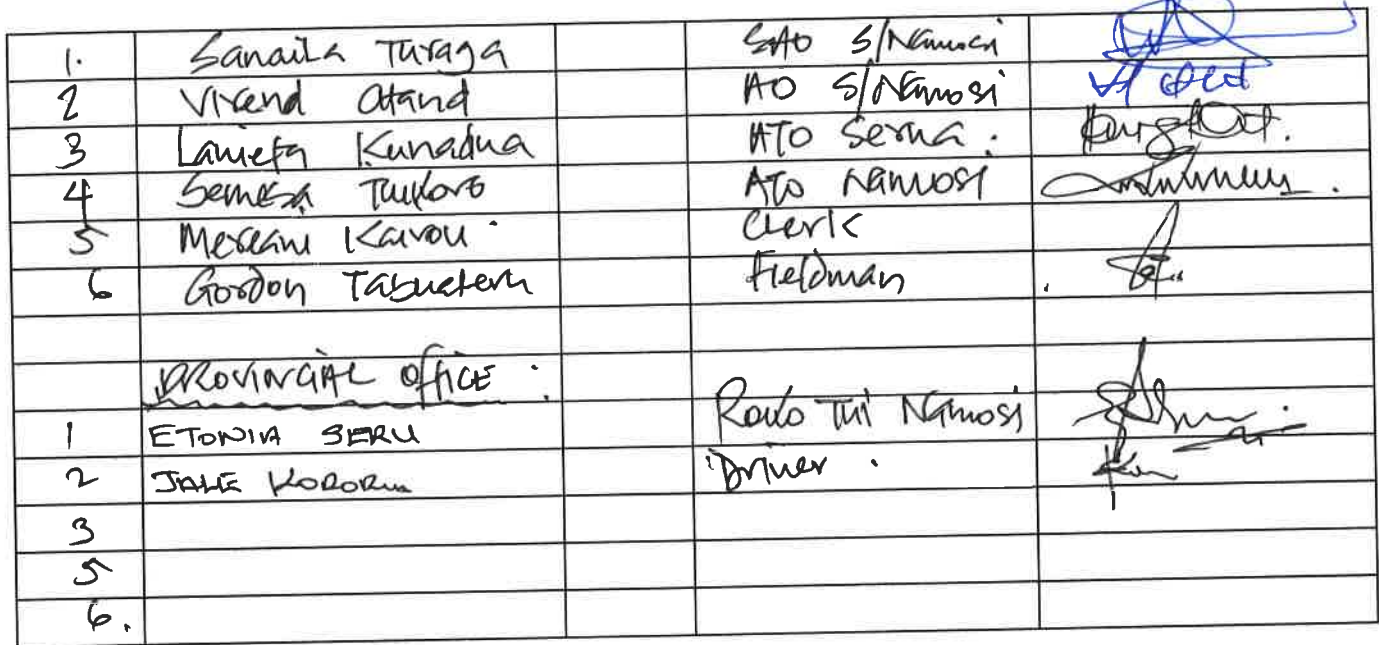 1. Sanaila Turaga SAO S/Namosi
2 Vivend Chand AO S/Namosi
3 Lanieta Kunadua ATO Serua.
4 Semesa Tuikoro ATO Namosi
5 Mereani Kaivou Clerk
6 Gordon Fieldman
PROVINCIAL OFFICE:
1 ETONIA SERU Roko Tui Namosi
2 JALE Driver.
3
5
6.